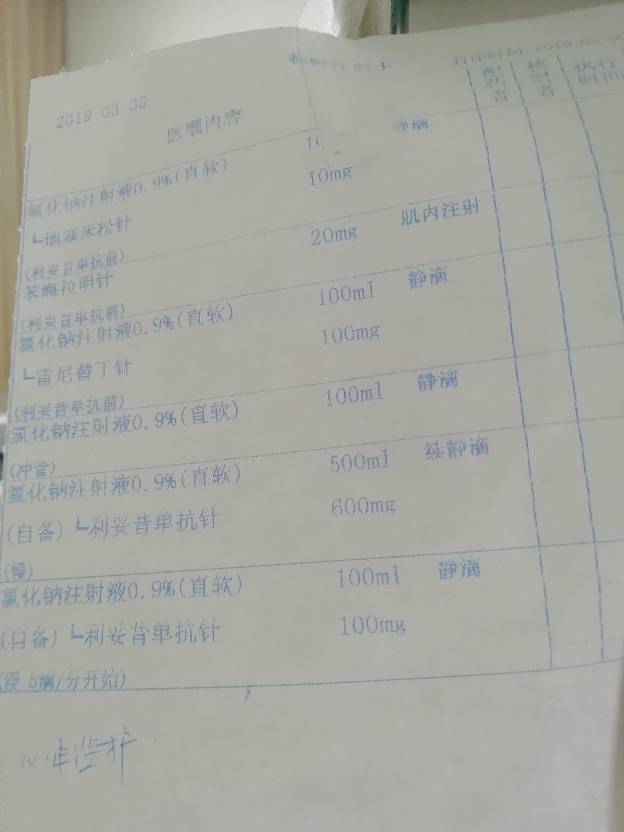 2019 03 06
医嘱内容
执行
氯化钠注射液0.9%(直软) 静滴
└地塞米松针 10mg
(利妥昔单抗前)
苯海拉明针 20mg 肌内注射
(利妥昔单抗前)
氯化钠注射液0.9%(直软) 100ml 静滴
└雷尼替丁针 100mg
(利妥昔单抗前)
氯化钠注射液0.9%(直软) 100ml 静滴
(冲管)
氯化钠注射液0.9%(直软) 500ml 续静滴
(自备) └利妥昔单抗针 600mg
(慢)
氯化钠注射液0.9%(直软) 100ml 静滴
(自备) └利妥昔单抗针 100mg
(慢 5滴/分开始)
心电监护